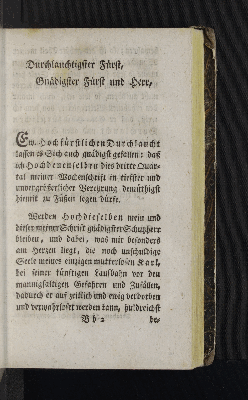 Durchlauchtigster Fürst,
Gnädigster Fürst und Herr,
Ew. Hochfürstlichen Durchlaucht
lassen es Sich auch gnädigst gefallen: daß
ich Hochdenenselben dies dritte Quar-
tal meiner Wochenschrift in tiefster und
unvergrößerlicher Verehrung demüthigst
hiemit zu Füßen legen dürfe.
Werden Hochdieselben mein und
dieser meiner Schrift gnädigster Schutzherr
bleiben, und dabei, was mir besonders
am Herzen liegt, die noch unschuldige
Seele meines einzigen mutterlosen Karl,
bei seiner künftigen Laufbahn vor den
mannigfaltigen Gefahren und Zufällen,
dadurch er auf zeitlich und ewig verdorben
und verwahrloset werden kann, huldreichst
Bb 2
be-